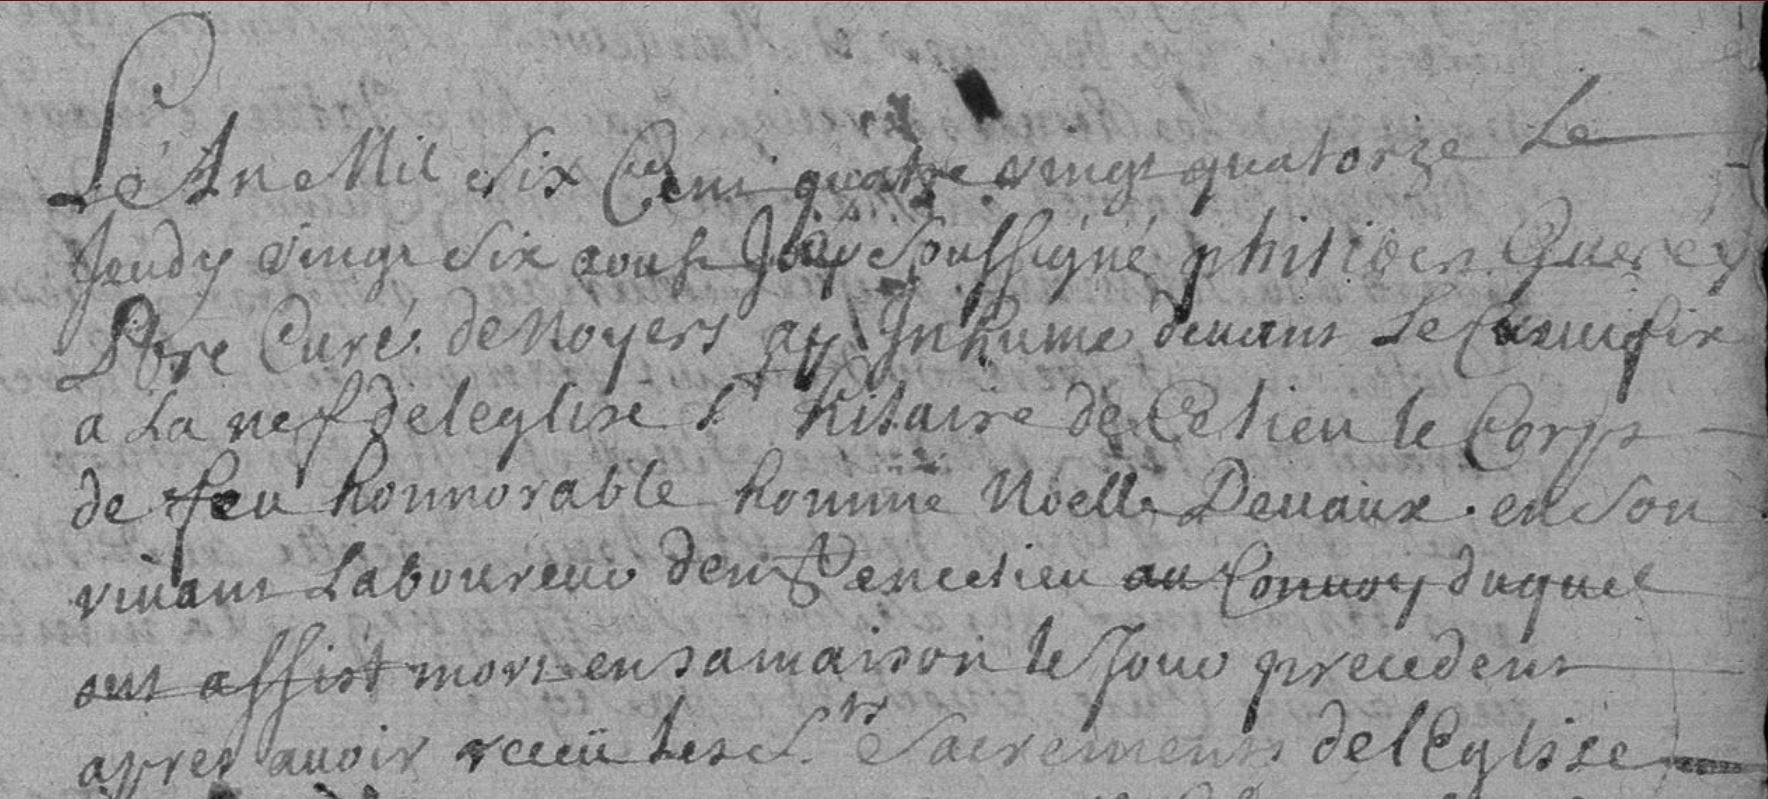 Le An Mil Six Cent quatre vingt quatorze Le
Jeudy vingt Six aoust Je Soussigné philiben Querey
Pbre Curé de Noyers ay Inhumé devant Le Crucifix
a La nef de leglise St hilaire de Ce lieu le Corps
de feu honnorable homme Noelle Devaux en Son
vivant Laboureur dem&#39; en ce lieu au Convoy duquel
ont assist mort en sa maison le Jour precedent
apres avoir receu les Sts Sacrements de lEglise